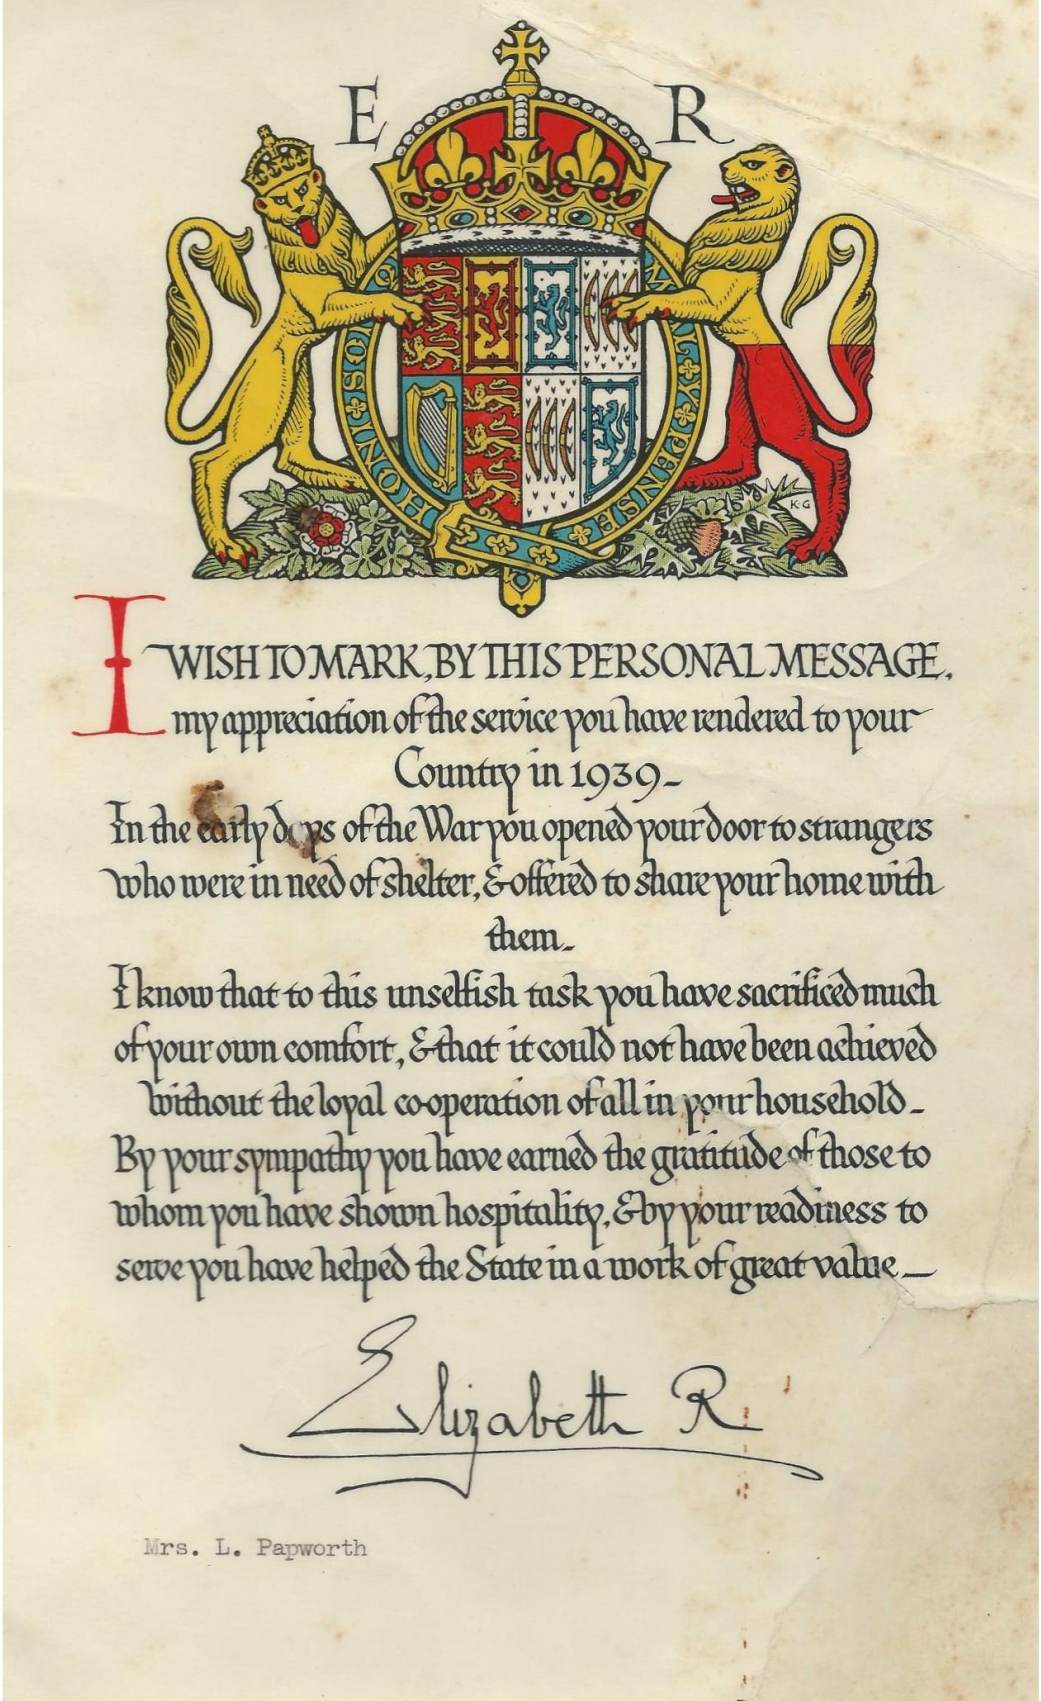 E R
HONI · SO
Y · PENSE
K G
I WISH TO MARK, BY THIS PERSONAL MESSAGE,
my appreciation of the service you have rendered to your
Country in 1939-
In the early days of the War you opened your door to strangers
who were in need of shelter, & offered to share your home with
them-
I know that to this unselfish task you have sacrificed much
of your own comfort, & that it could not have been achieved
without the loyal co-operation of all in your household-
By your sympathy you have earned the gratitude of those to
whom you have shown hospitality, & by your readiness to
serve you have helped the State in a work of great value-
Elizabeth R
Mrs. L. Papworth